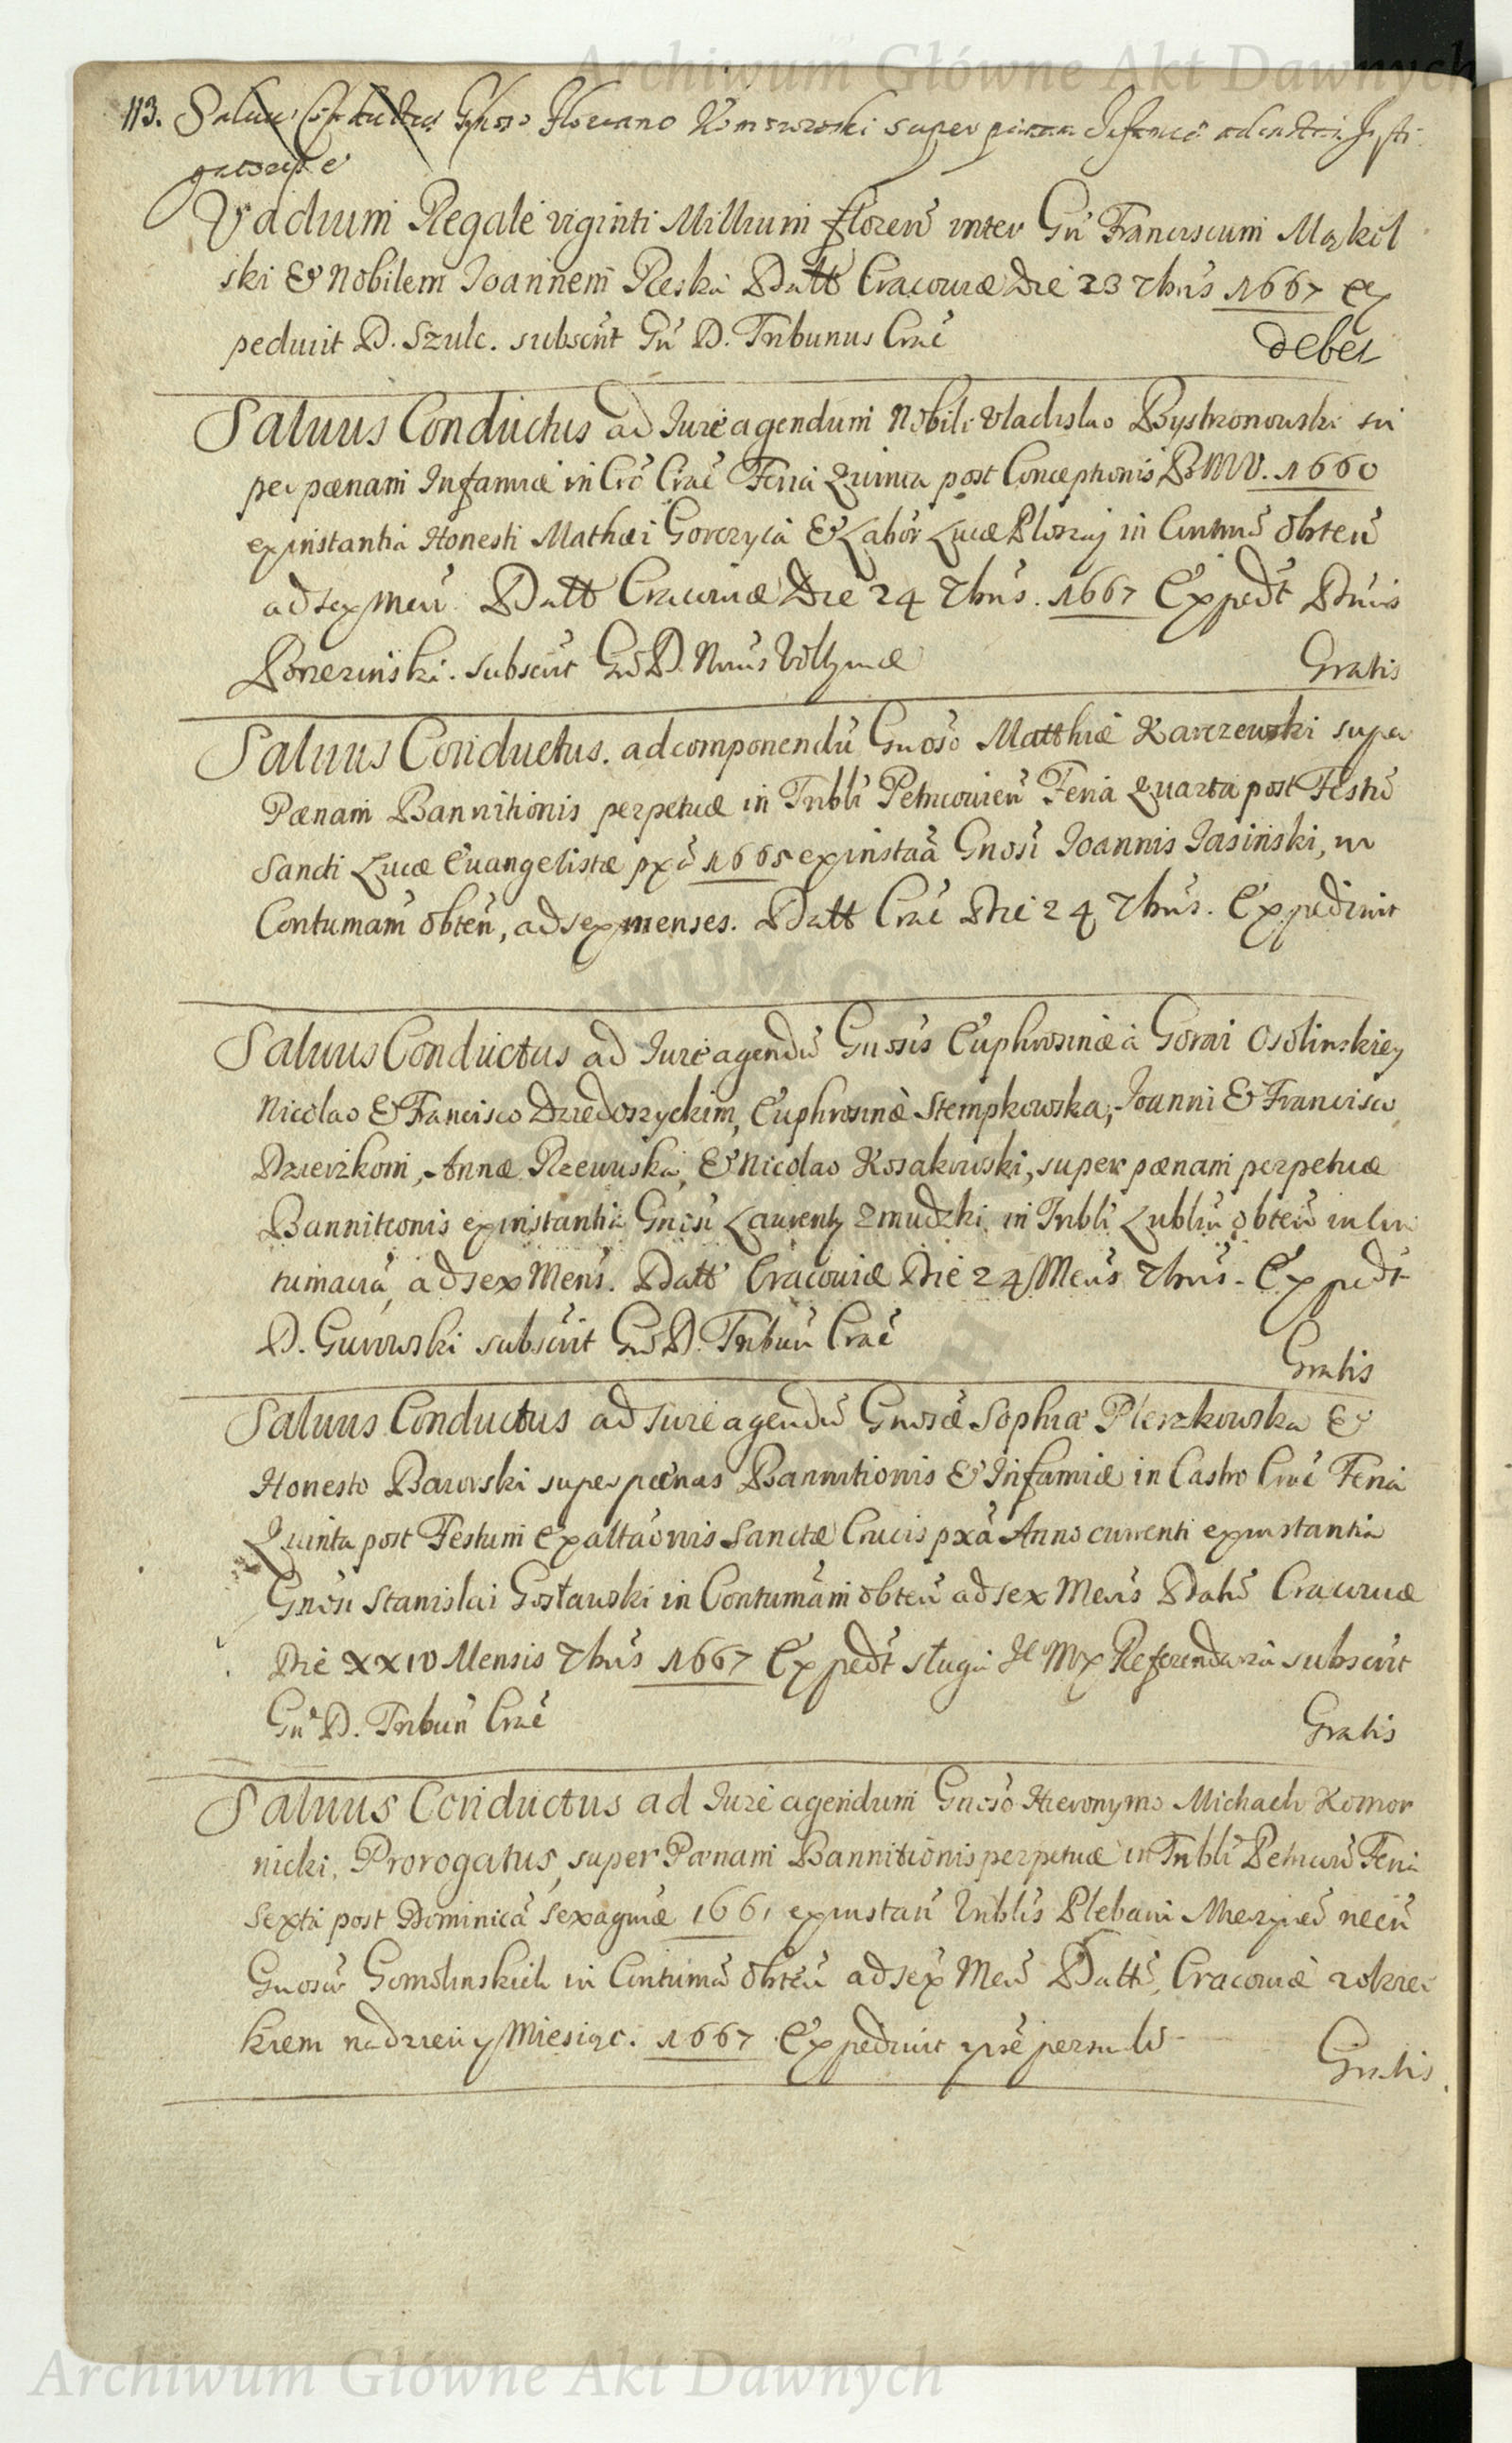 Archiwum Główne Akt Dawnych
113. Saluus Conductus Gnoso Floriano Komorowski super pœnam Infamiæ ad instan Insti
gatoris
Vadium Regale viginti Millium florenˇ inter Gn Franciscum Mozkol
ski & Nobilem Joannem Reski Datt Cracouiæ Die 23 7bris 1667 Ex
pediuit D. Szulc. subscrit Gn D. Tribunus Crac
debet
Saluus Conductus ad Jure agendum Nobili Vladislao Bystronowski su
per pœnam Infamiæ in Cro Crac Feria Quinta post Conceptionis BMV. 1660
ex instantia Honesti Mathæi Gorczyca & Labor Lucæ in Contum obten
ad sex men. Datt Cracouiæ Die 24 7bris. 1667 Expedt Dnus
subscrit Gn D. Nrius Volhyniæ
Gratis
Saluus Conductus. ad componendu Gnoso Matthiæ Karczewski super
Pœnam Bannitionis perpetuæ in Trbli Petricouien Feria Quarta post Festu
Sancti Lucæ Euangelistæ pxa 1665 ex instaa Gnosi Joannis Jasinski, in
Contumam obten, ad sex menses. Datt Crac Die 24 7bris. Expediuit
Saluus Conductus ad Jure agendu Gnosis Euphrosinæ a Gorai Osolinskiey
Nicolao & Francisco Dziedoszyckim, Euphrosinæ Stempkowska, Joanni & Francisco
Dzierzkom, Annæ Rzewuska, & Nicolao Kosakowski, super pœnam perpetuæ
Bannitionis ex instantia Gnosi Laurenty Zmudzki in Trbli Lublin obten in Con
tumacia, ad sex Mens. Datt Cracouiæ Die 24 Mens 7bris. Expedt
D. Gurowski subscrit Gn D. Tribun Crac
Gratis
Saluus Conductus ad Jure agendu Gnosæ Sophiæ Pleszkowska &
Honesto Barorski super pœnas Bannitionis & Infamiæ in Castro Crac Feria
Quinta post Festum Exaltaonis Sanctæ Crucis pxa Anno currenti ex instantia
Gnosi Stanislai Gosławski in Contumam obten ad sex Mens Datu Cracouiæ
Die XXIV Mensis 7bris 1667 Expedt sługa Je Mx Referendarza subscrit
Gn D. Tribun Crac
Gratis
Saluus Conductus ad Jure agendum Gnoso Hieronymo Michaeli Komor
nicki, Prorogatus, super Pœnam Bannitionis perpetuæ in Trbli Petricou Feria
Sexta post Dominica Sexagmæ 1661 ex instan Vnblis Plebani necn
Gnosor Gomolinskich in Contuma obten ad sex Men Datt, Cracouiæ
kiem na dzien y Miesiąc. 1667 Expediuit
Gratis
Archiwum Główne Akt Dawnych